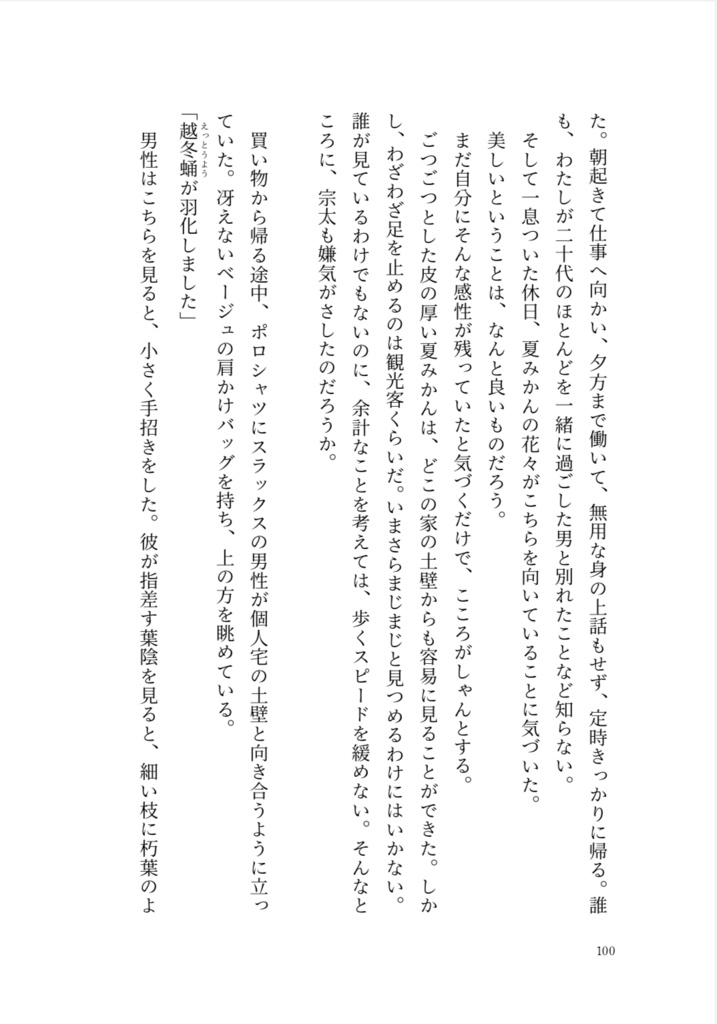 た。朝起きて仕事へ向かい、夕方まで働いて、無用な身の上話もせず、定時きっかりに帰る。誰
も、わたしが二十代のほとんどを一緒に過ごした男と別れたことなど知らない。
そして一息ついた休日、夏みかんの花々がこちらを向いていることに気づいた。
美しいということは、なんと良いものだろう。
まだ自分にそんな感性が残っていたと気づくだけで、こころがしゃんとする。
ごつごつとした皮の厚い夏みかんは、どこの家の土壁からも容易に見ることができた。しか
し、わざわざ足を止めるのは観光客くらいだ。いまさらまじまじと見つめるわけにはいかない。
誰が見ているわけでもないのに、余計なことを考えては、歩くスピードを緩めない。そんなと
ころに、宗太も嫌気がさしたのだろうか。
買い物から帰る途中、ポロシャツにスラックスの男性が個人宅の土壁と向き合うように立っ
ていた。冴えないベージュの肩かけバッグを持ち、上の方を眺めている。
えっとうよう
「越冬蛹が羽化しました」
男性はこちらを見ると、小さく手招きをした。彼が指差す葉陰を見ると、細い枝に朽葉のよ
100